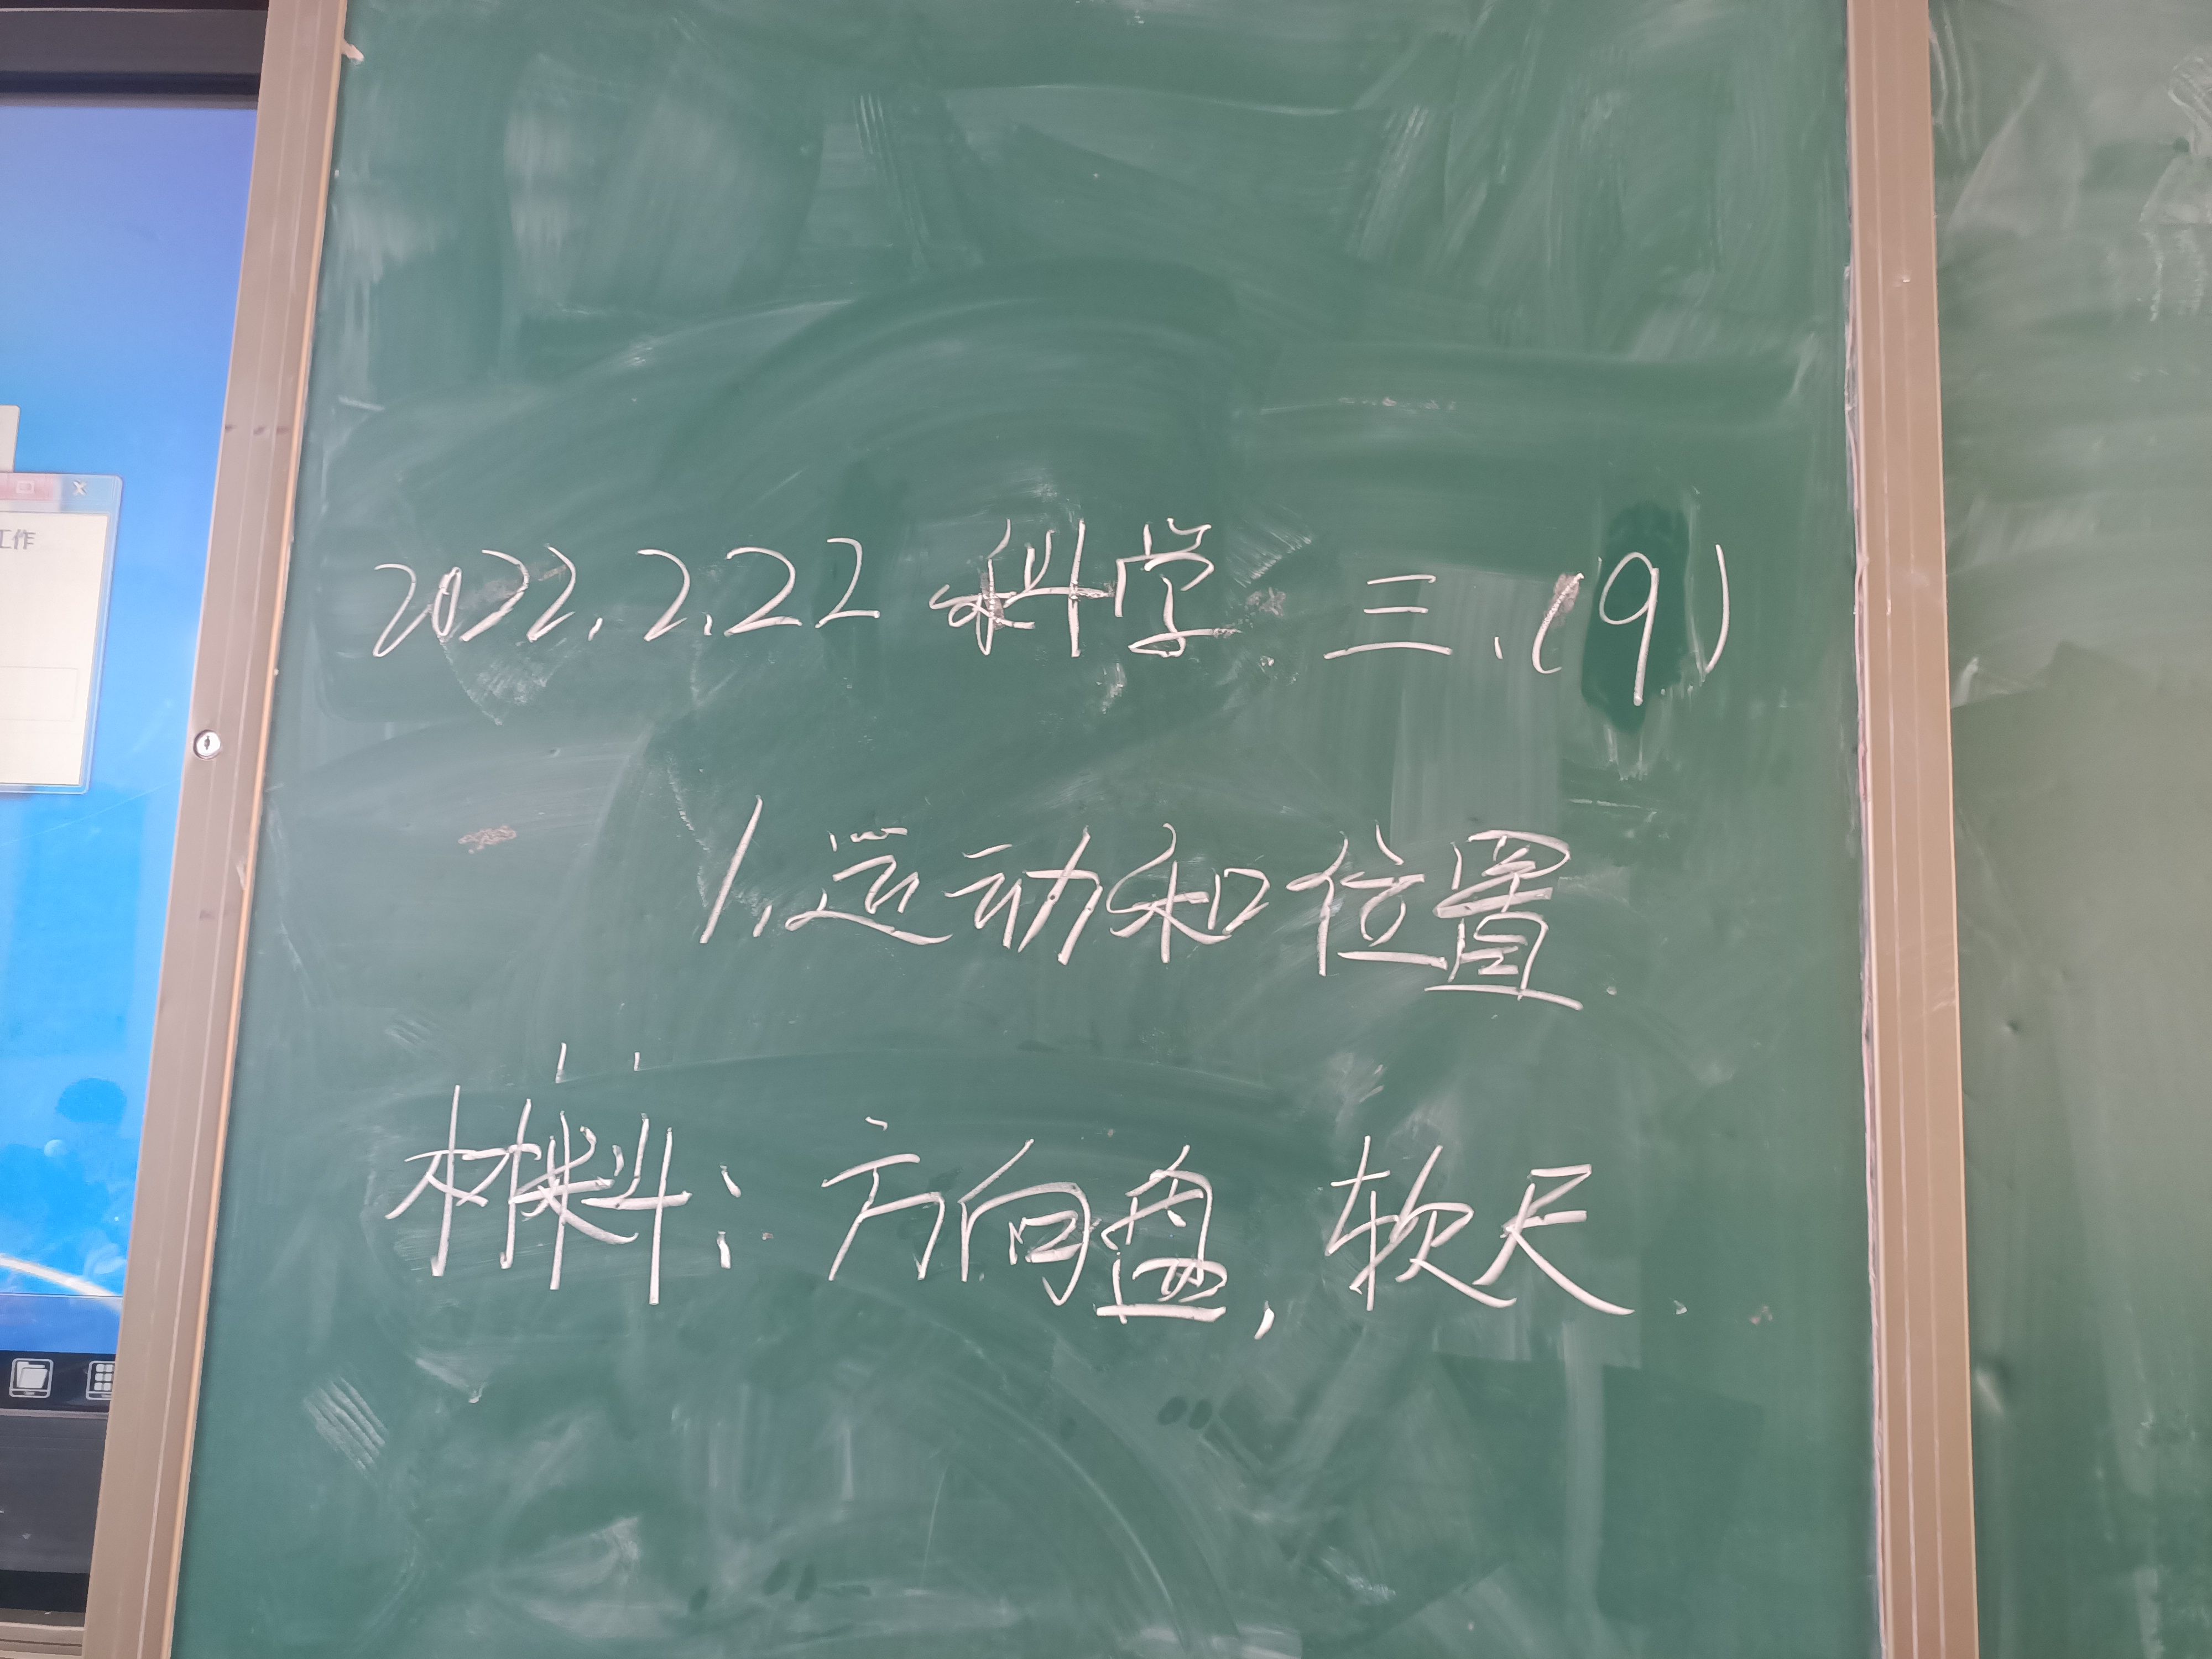 工作
2022.2.22 科学 三.(9)
1.运动和位置.
材料：方向盘，软尺.